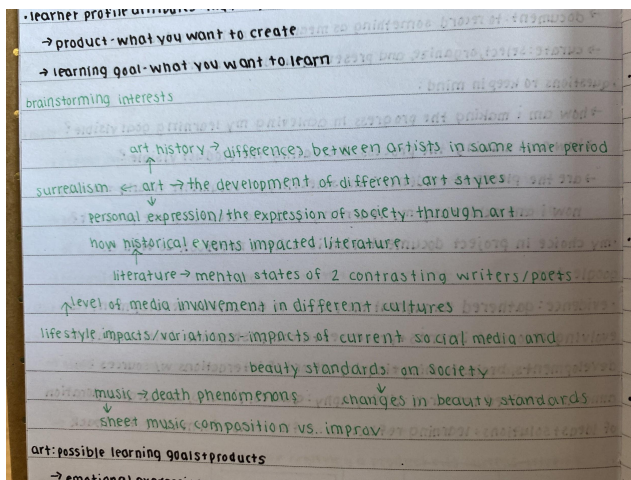 • learner profile attributes
→ product - what you want to create
→ learning goal - what you want to learn
brainstorming interests
art history → differences between artists in same time period
surrealism ← art → the development of different art styles
personal expression/the expression of society through art
how historical events impacted literature
literature → mental states of 2 contrasting writers/poets
level of media involvement in different cultures
lifestyle impacts/variations - impacts of current social media and
beauty standards on society
music → death phenomenons changes in beauty standards
sheet music composition vs. improv
art: possible learning goals + products